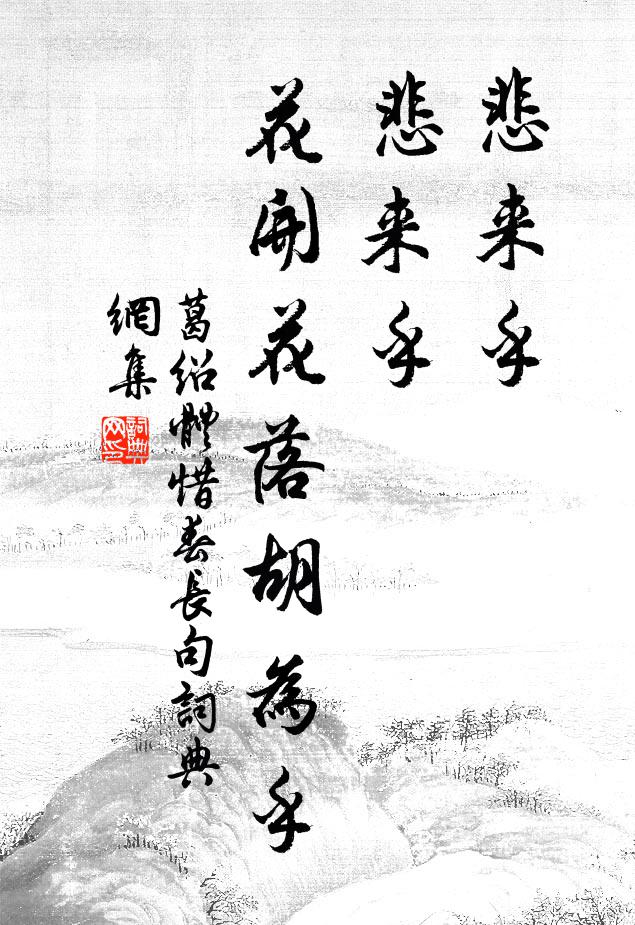 悲来乎
悲来乎
花開花落胡為乎
葛绍體惜春長句詞典
網集
詞典
网印